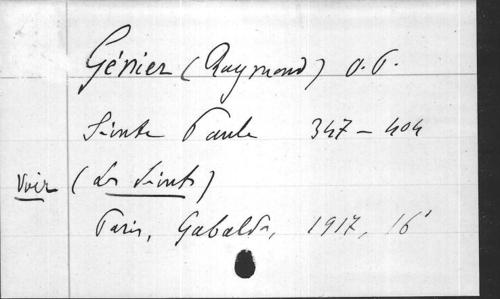 Génier (Raymond) O.P.
Sainte Paule 347 – 404
Voir (Les Saints)
Paris, Gabalda, 1917, 16°